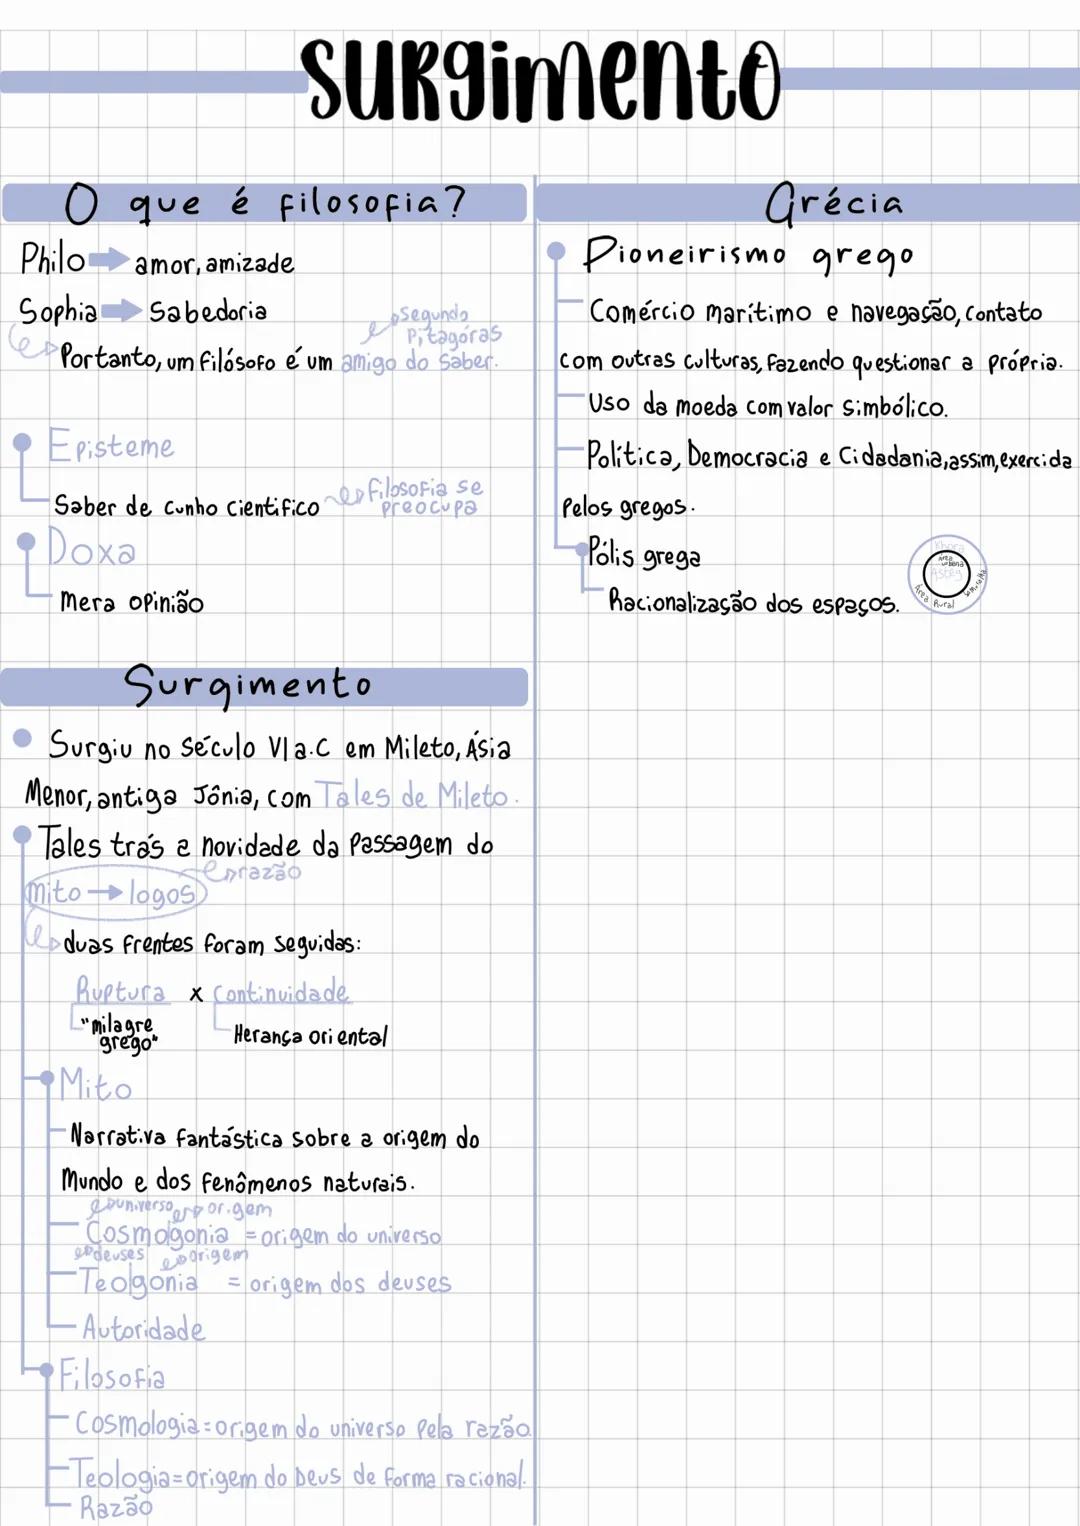 surgimento
O que é filosofia?
Philo → amor, amizade
Sophia → Sabedoria
Segundo
Pitagóras
Portanto, um filósofo é um amigo do saber.
Episteme
Saber de cunho cientifico
filosofia se
preocupa
Doxa
Mera opinião
Surgimento
Surgiu no século VI a.C em Mileto, Ásia
Menor, antiga Jônia, com Tales de Mileto.
Tales trás a novidade da passagem do
razão
mito → logos
duas frentes foram seguidas:
Ruptura x Continuidade
"milagre
grego"
Herança oriental
Mito
Narrativa fantástica sobre a origem do
Mundo e dos fenômenos naturais.
universo origem
Cosmogonia = origem do universo
deuses origem
Teolgonia = origem dos deuses
Autoridade
Filosofia
Cosmologia = origem do universo pela razão
Teologia = origem do Deus de forma racional.
Razão
Grécia
Pioneirismo grego
Comércio marítimo e navegação, contato
com outras culturas, fazendo questionar a própria.
Uso da moeda com valor simbólico.
Política, Democracia e Cidadania, assim, exercida
pelos gregos.
Pólis grega
Racionalização dos espaços.
Khora
Área
urbana
Área Rural